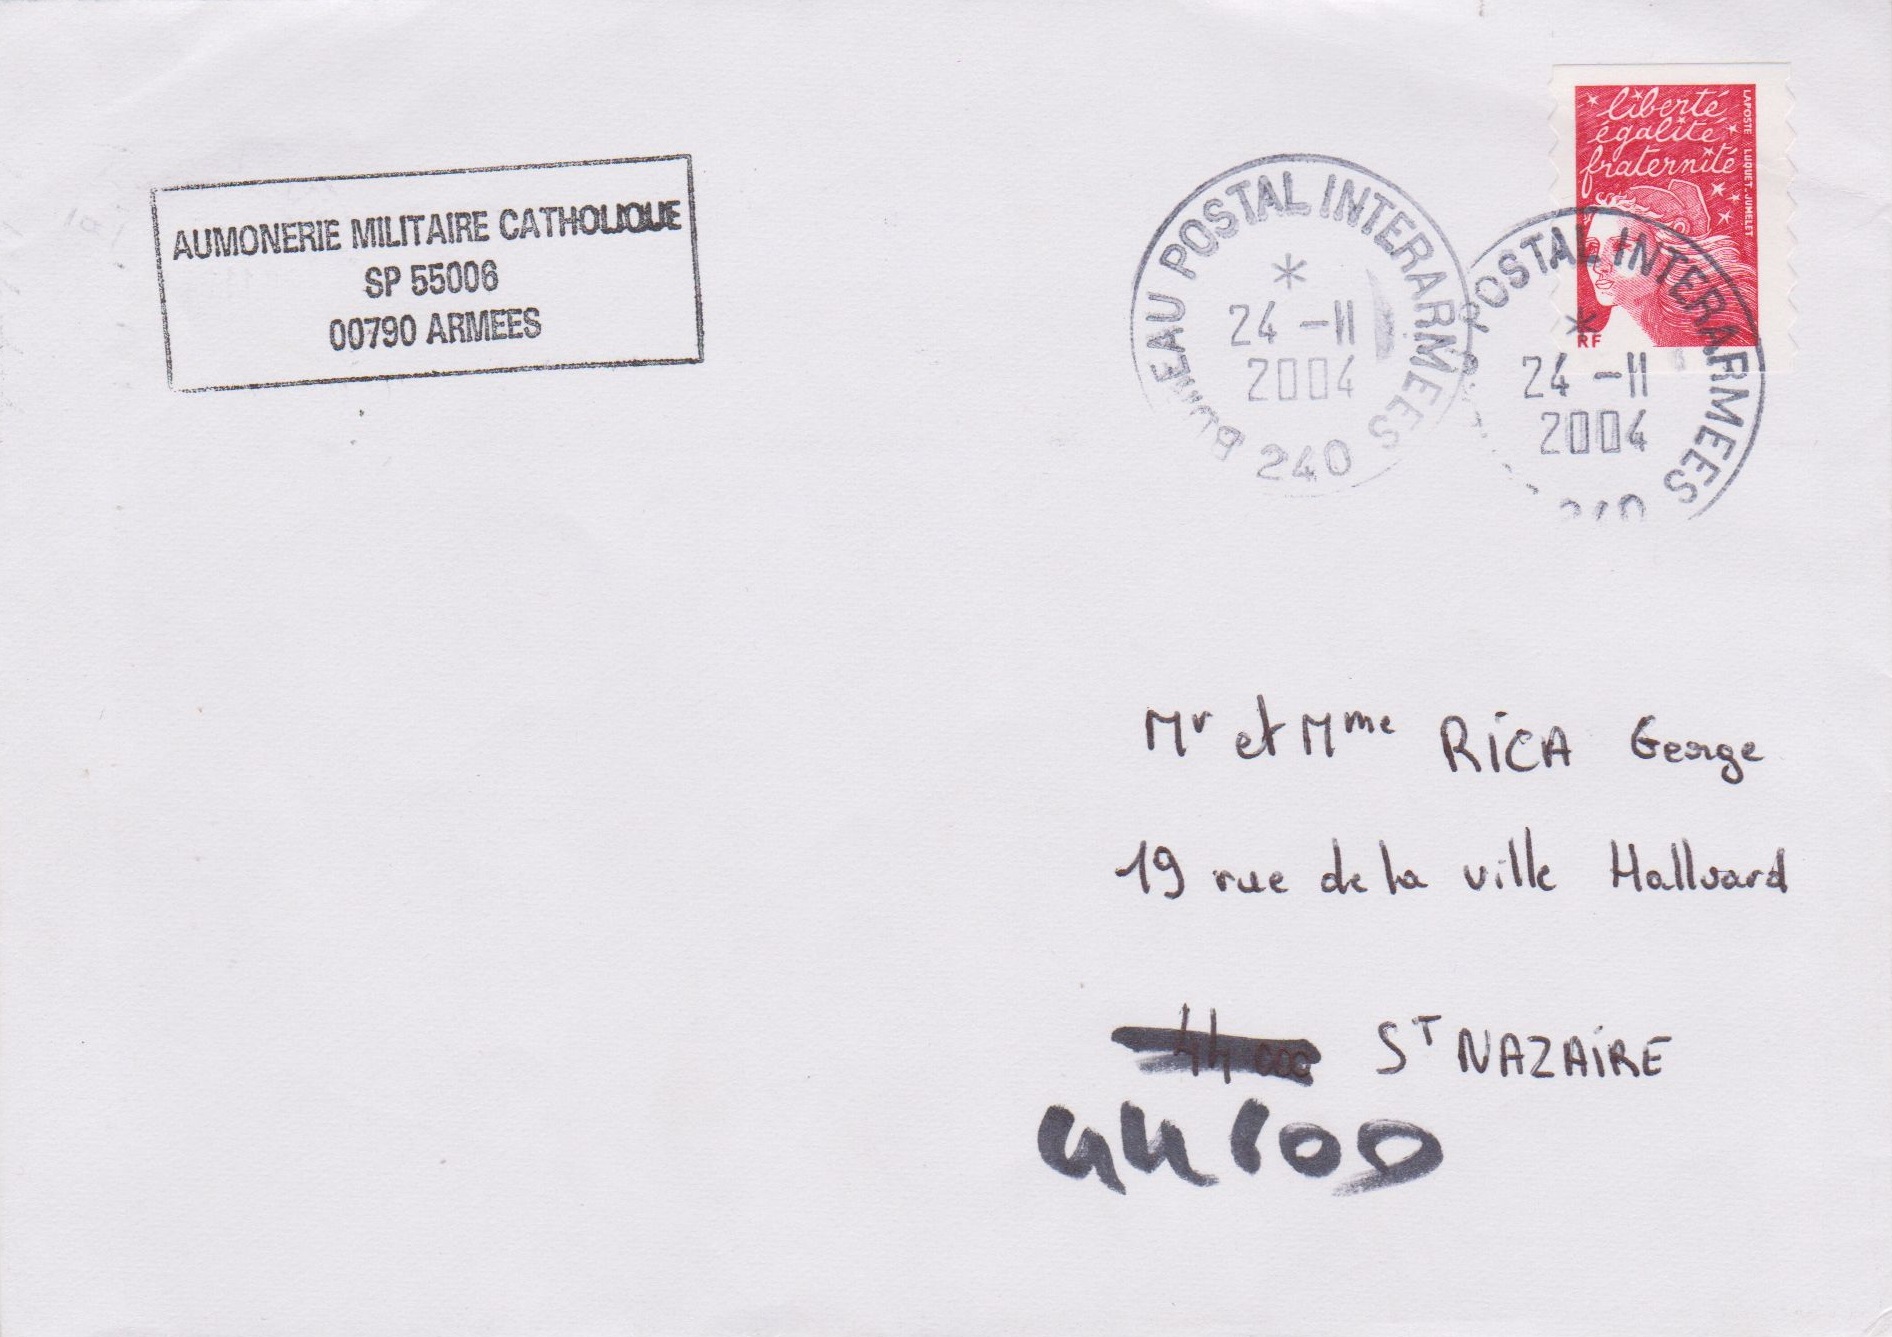 AUMONERIE MILITAIRE CATHOLIQUE
SP 55006
00790 ARMEES
BUREAU POSTAL INTERARMEES
*
24 -11
2004
240
POSTAL INTERARMEES
*
24 -11
2004
240
liberté
égalité
fraternité
LAPOSTE LUQUET-JUMELET
RF
Mr et Mme RICA George
19 rue de la ville Halluard
44 000 ST NAZAIRE
44600